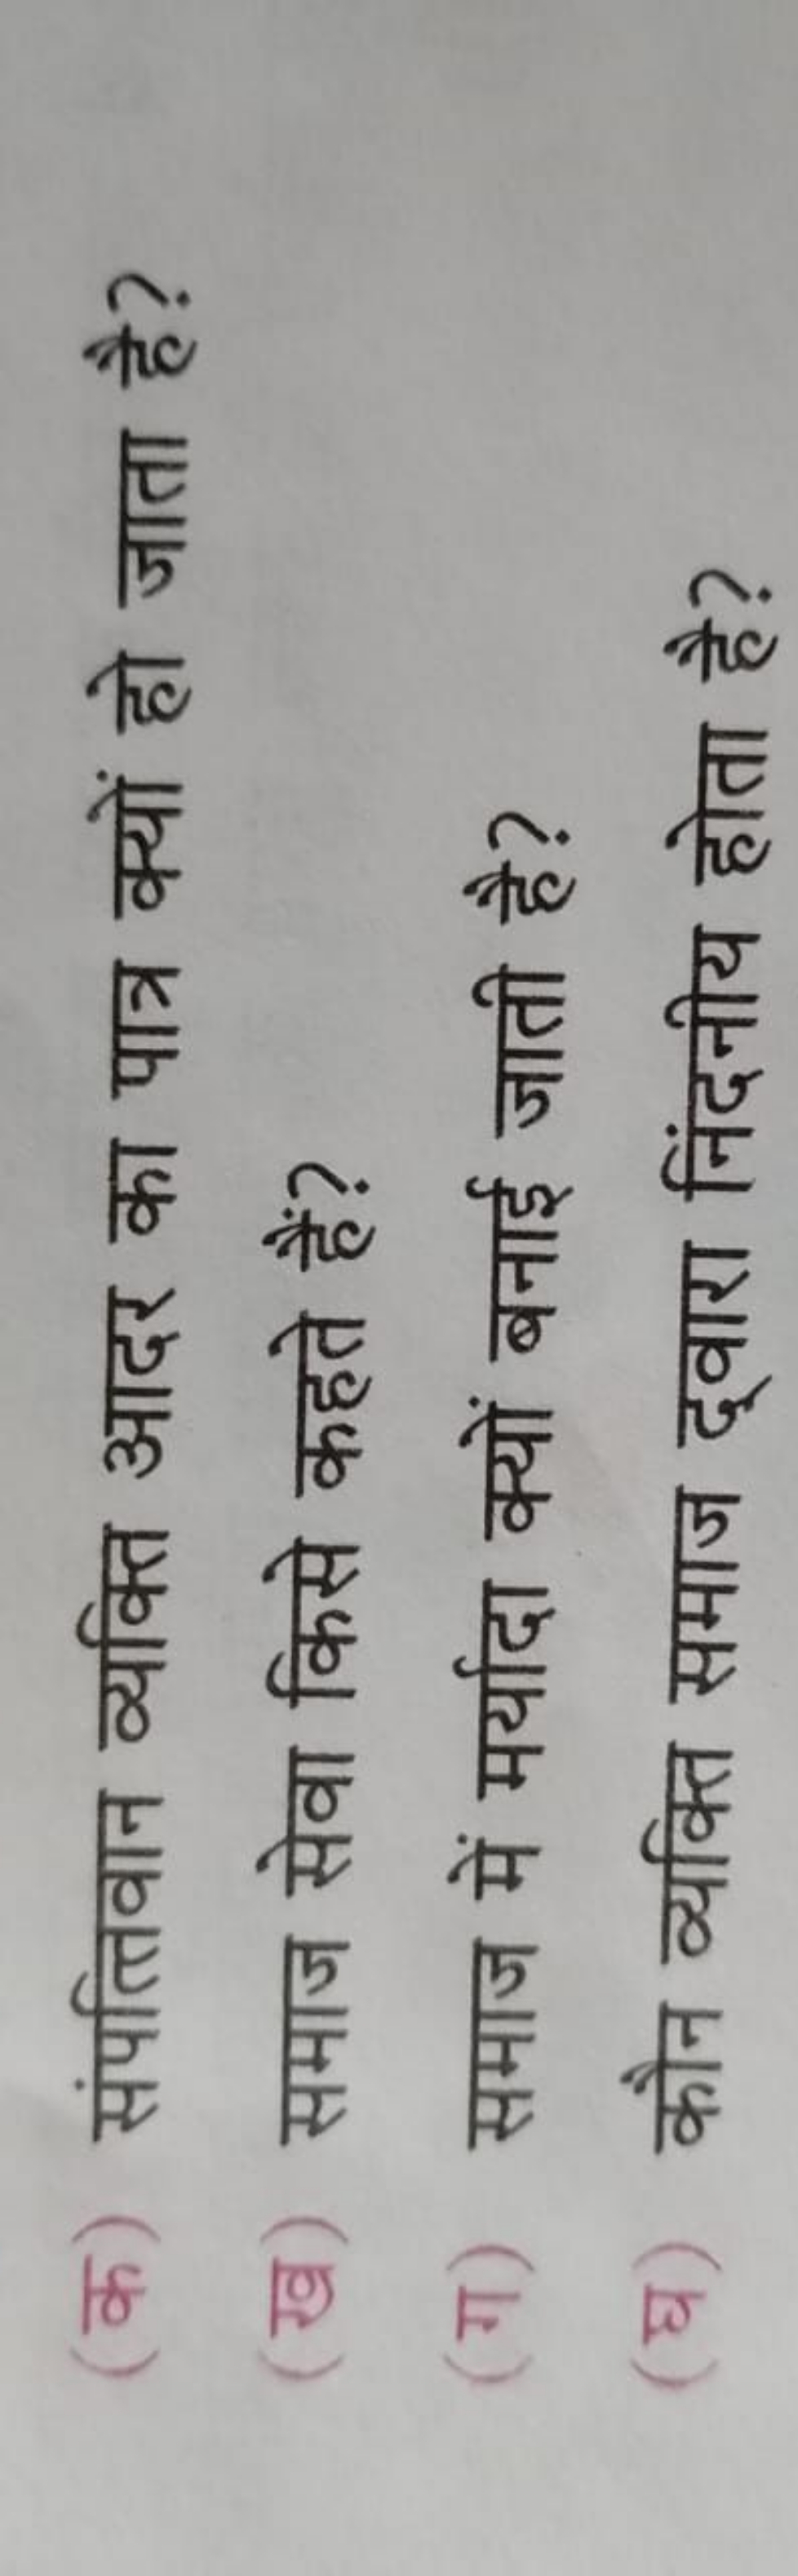 (क) संपत्तिवान व्यक्ति आदर का पात्र क्यों हो जाता है?
(ख) समाज सेवा किसे कहते हैं?
(ग) समाज में मर्यादा क्यों बनाई जाती है?
(घ) कौन व्यक्ति समाज द्वारा निंदनीय होता है?